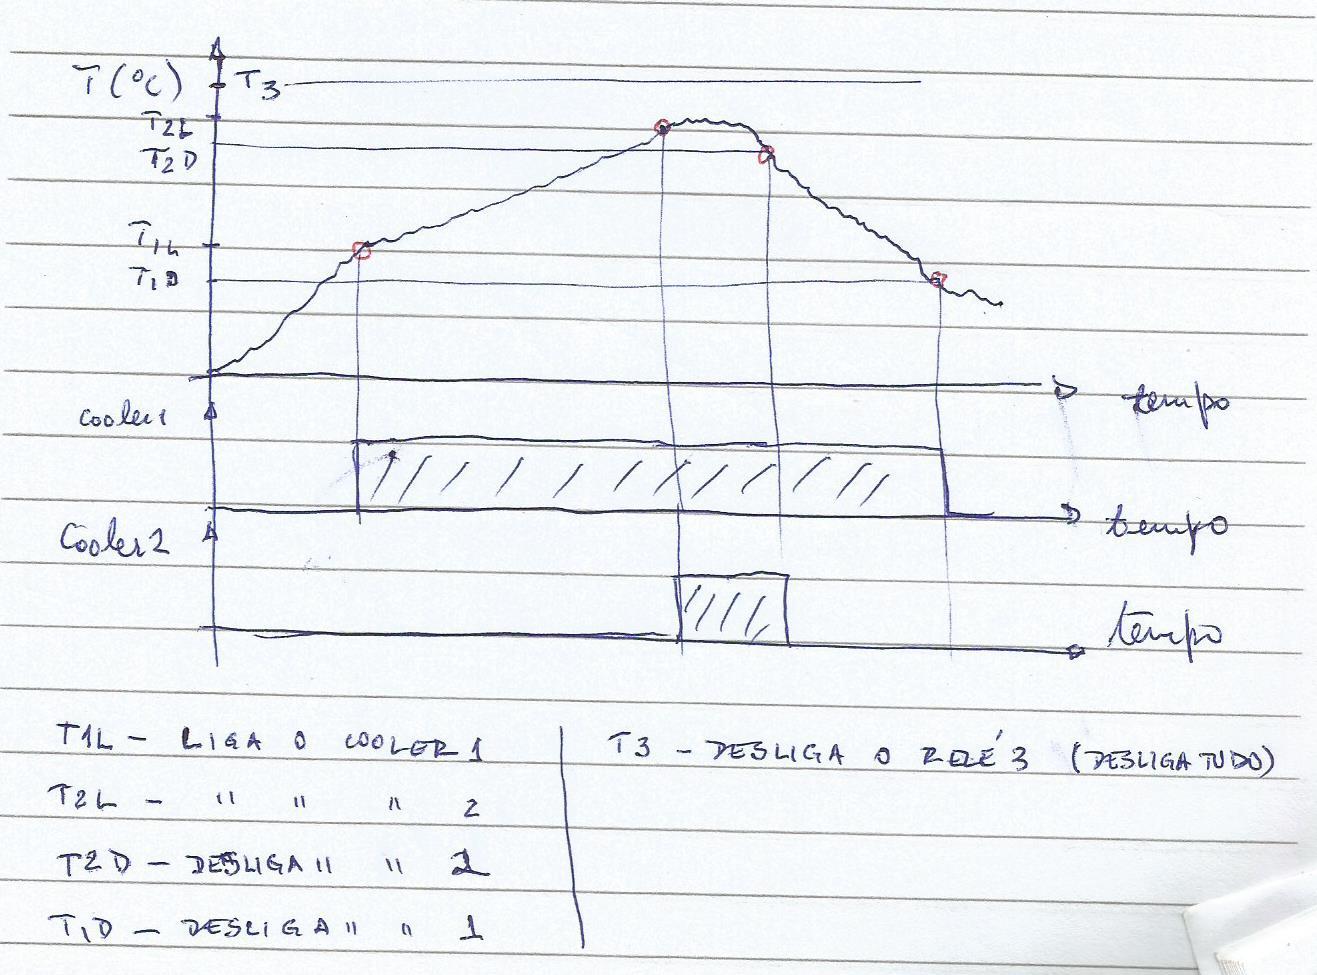 T(°C) T3
T2L
T2D
T1L
T1D
tempo
cooler1
tempo
Cooler2
tempo
T1L - LIGA O COOLER 1
T2L - " " " 2
T2D - DESLIGA " " 2
T1D - DESLIGA " " 1
T3 - DESLIGA O RELÉ 3 (DESLIGA TUDO)